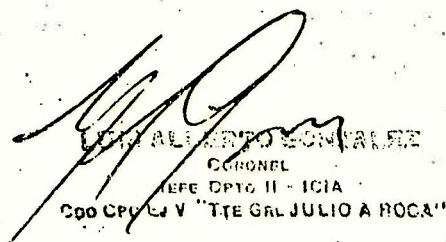 LUIS ALBERTO GONZALEZ
CORONEL
JEFE DPTO II - ICIA
CDO CPO EJ V "TTE GRL JULIO A ROCA"